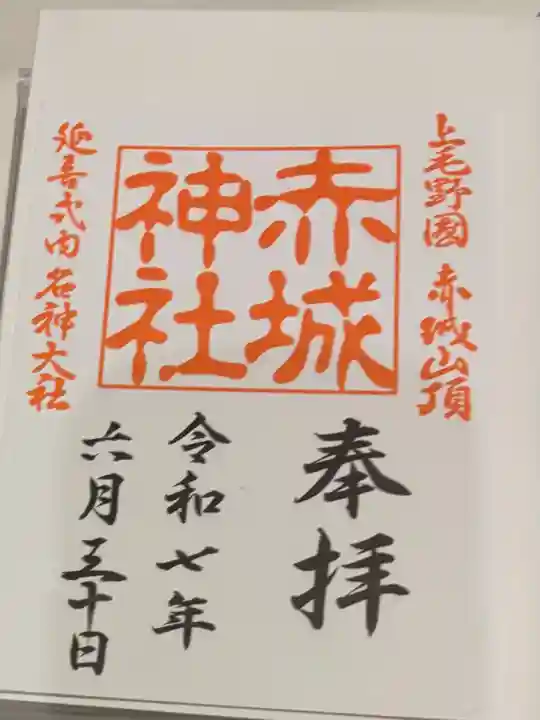 上毛野國 赤城山頂
赤城
神社
延喜式内名神大社
奉拝
令和七年
六月三十日